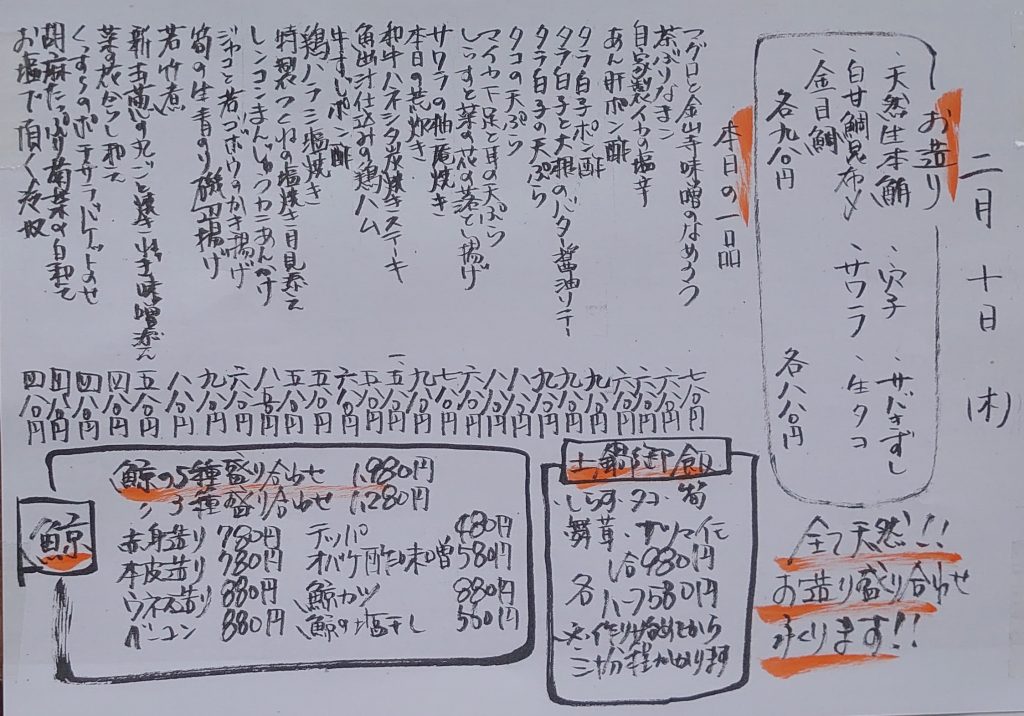 二月十日(木)
お造り
・天然生本鮪 ・穴子 ・サバきずし
・白甘鯛昆布〆 ・サワラ ・生タコ
・金目鯛
各九八〇円 各八八〇円
全て天然!!
お造り盛り合わせ
承ります!!
本日の一品
マグロと金山寺味噌のなめろう 七八〇円
茶ぶりなまこ 六八〇円
自家製イカの塩辛 六八〇円
あん肝ポン酢 六八〇円
タラ白子ポン酢 九八〇円
タラ白子と大根のバター醤油ソテー 九八〇円
タラ白子の天ぷら 九八〇円
タコの天ぷら 八八〇円
マイカ下足と耳の天ぷら 八八〇円
しらすと菜の花の落とし揚げ 六八〇円
サワラの柚庵焼き 七八〇円
本日の荒炊き 九八〇円
和牛ハネシタ炭焼きステーキ 一、五八〇円
魚出汁仕込みの鶏ハム 五八〇円
牛すじポン酢 六八〇円
鶏ハラミ塩焼き 五八〇円
特製つくねの塩焼き 月見添え 五八〇円
レンコンまんじゅうカニあんかけ 八八〇円
ジャコと若ゴボウのかき揚げ 六八〇円
筍の生青のり磯辺揚げ 九八〇円
若竹煮 八八〇円
新玉葱の丸ごと焼き 味噌添え 五八〇円
菜の花からし和え 四八〇円
くつろぎのポテサラ バゲットのせ 四八〇円
胡麻たっぷり菊菜の白和え 四八〇円
お塩で頂く冷奴 四八〇円
土鍋御飯
しらす・タコ・筍
舞茸・サツマイモ
各 1合980円
ハーフ580円
※作り始めてから
三十分程かかります
鯨
鯨の5種盛り合わせ 1,980円
〃3種盛り合わせ 1,280円
赤身造り 780円
本皮造り 780円
ウネス造り 880円
ベーコン 880円
テッパ 480円
オバケ酢味噌 580円
鯨カツ 880円
鯨の塩干し 580円